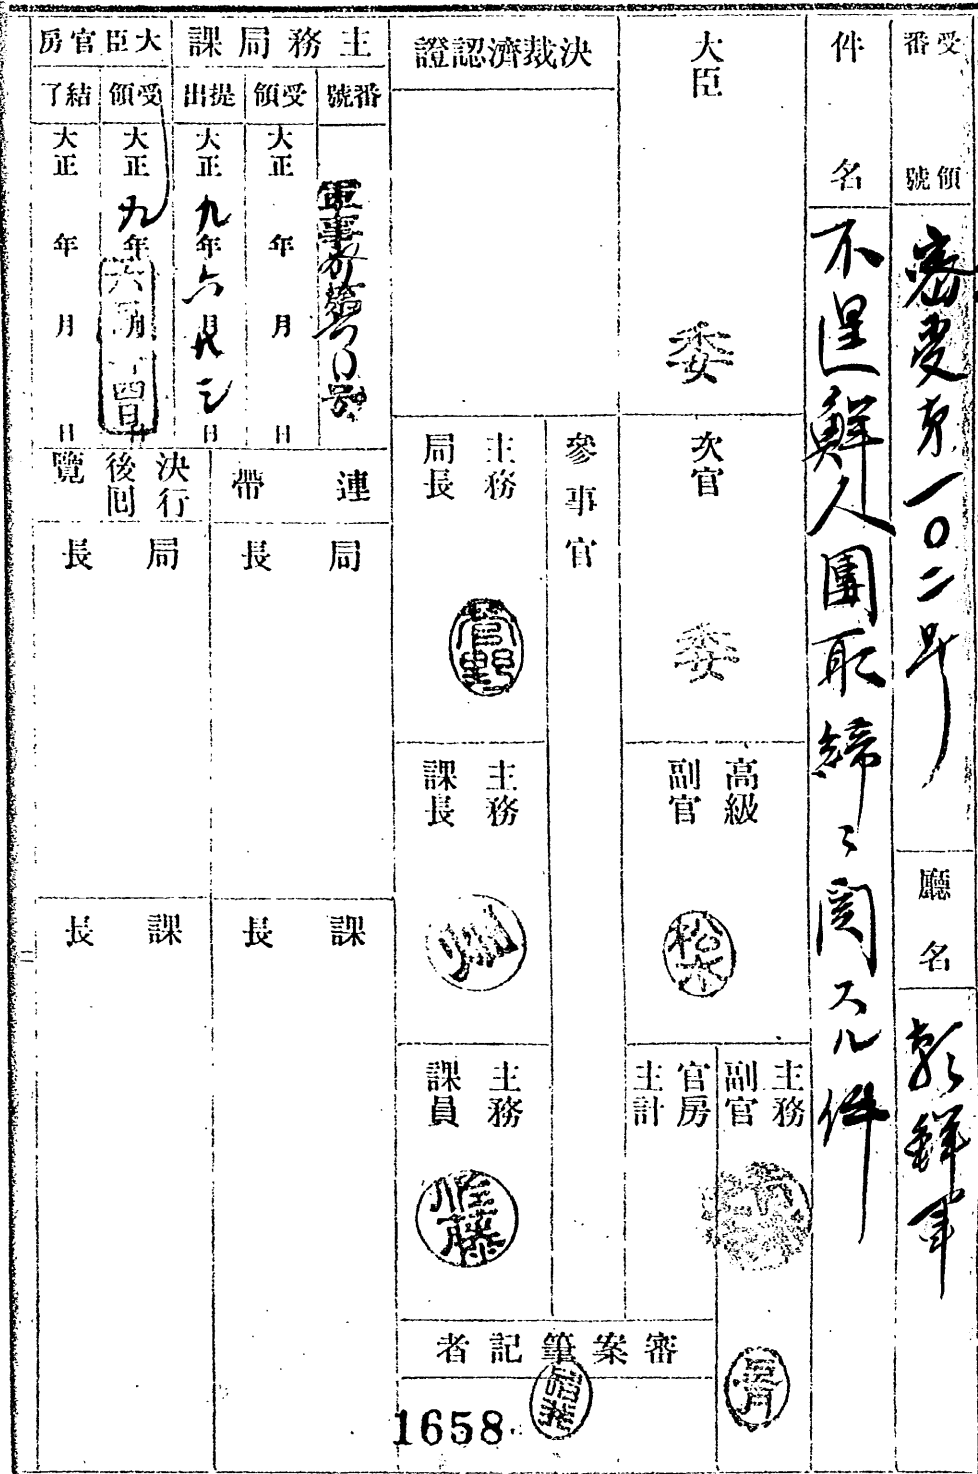 受領番號
密受第一〇二号
廳名
朝鮮軍
件名
不逞鮮人團取締ニ関スル件
大臣
委
次官
委
高級副官
松木
主務副官
官房主計
決裁濟認證
參事官
主務局長
菅野
主務課長
主務課員
佐藤
審案筆記者
主務局課
番號
軍事
受領
大正 年 月 日
提出
大正九年六月廿三日
大臣官房
受領
大正九年 月 日
六月廿四日
結了
大正 年 月 日
連帶
局長
課長
決行後回覽
局長
課長
1658